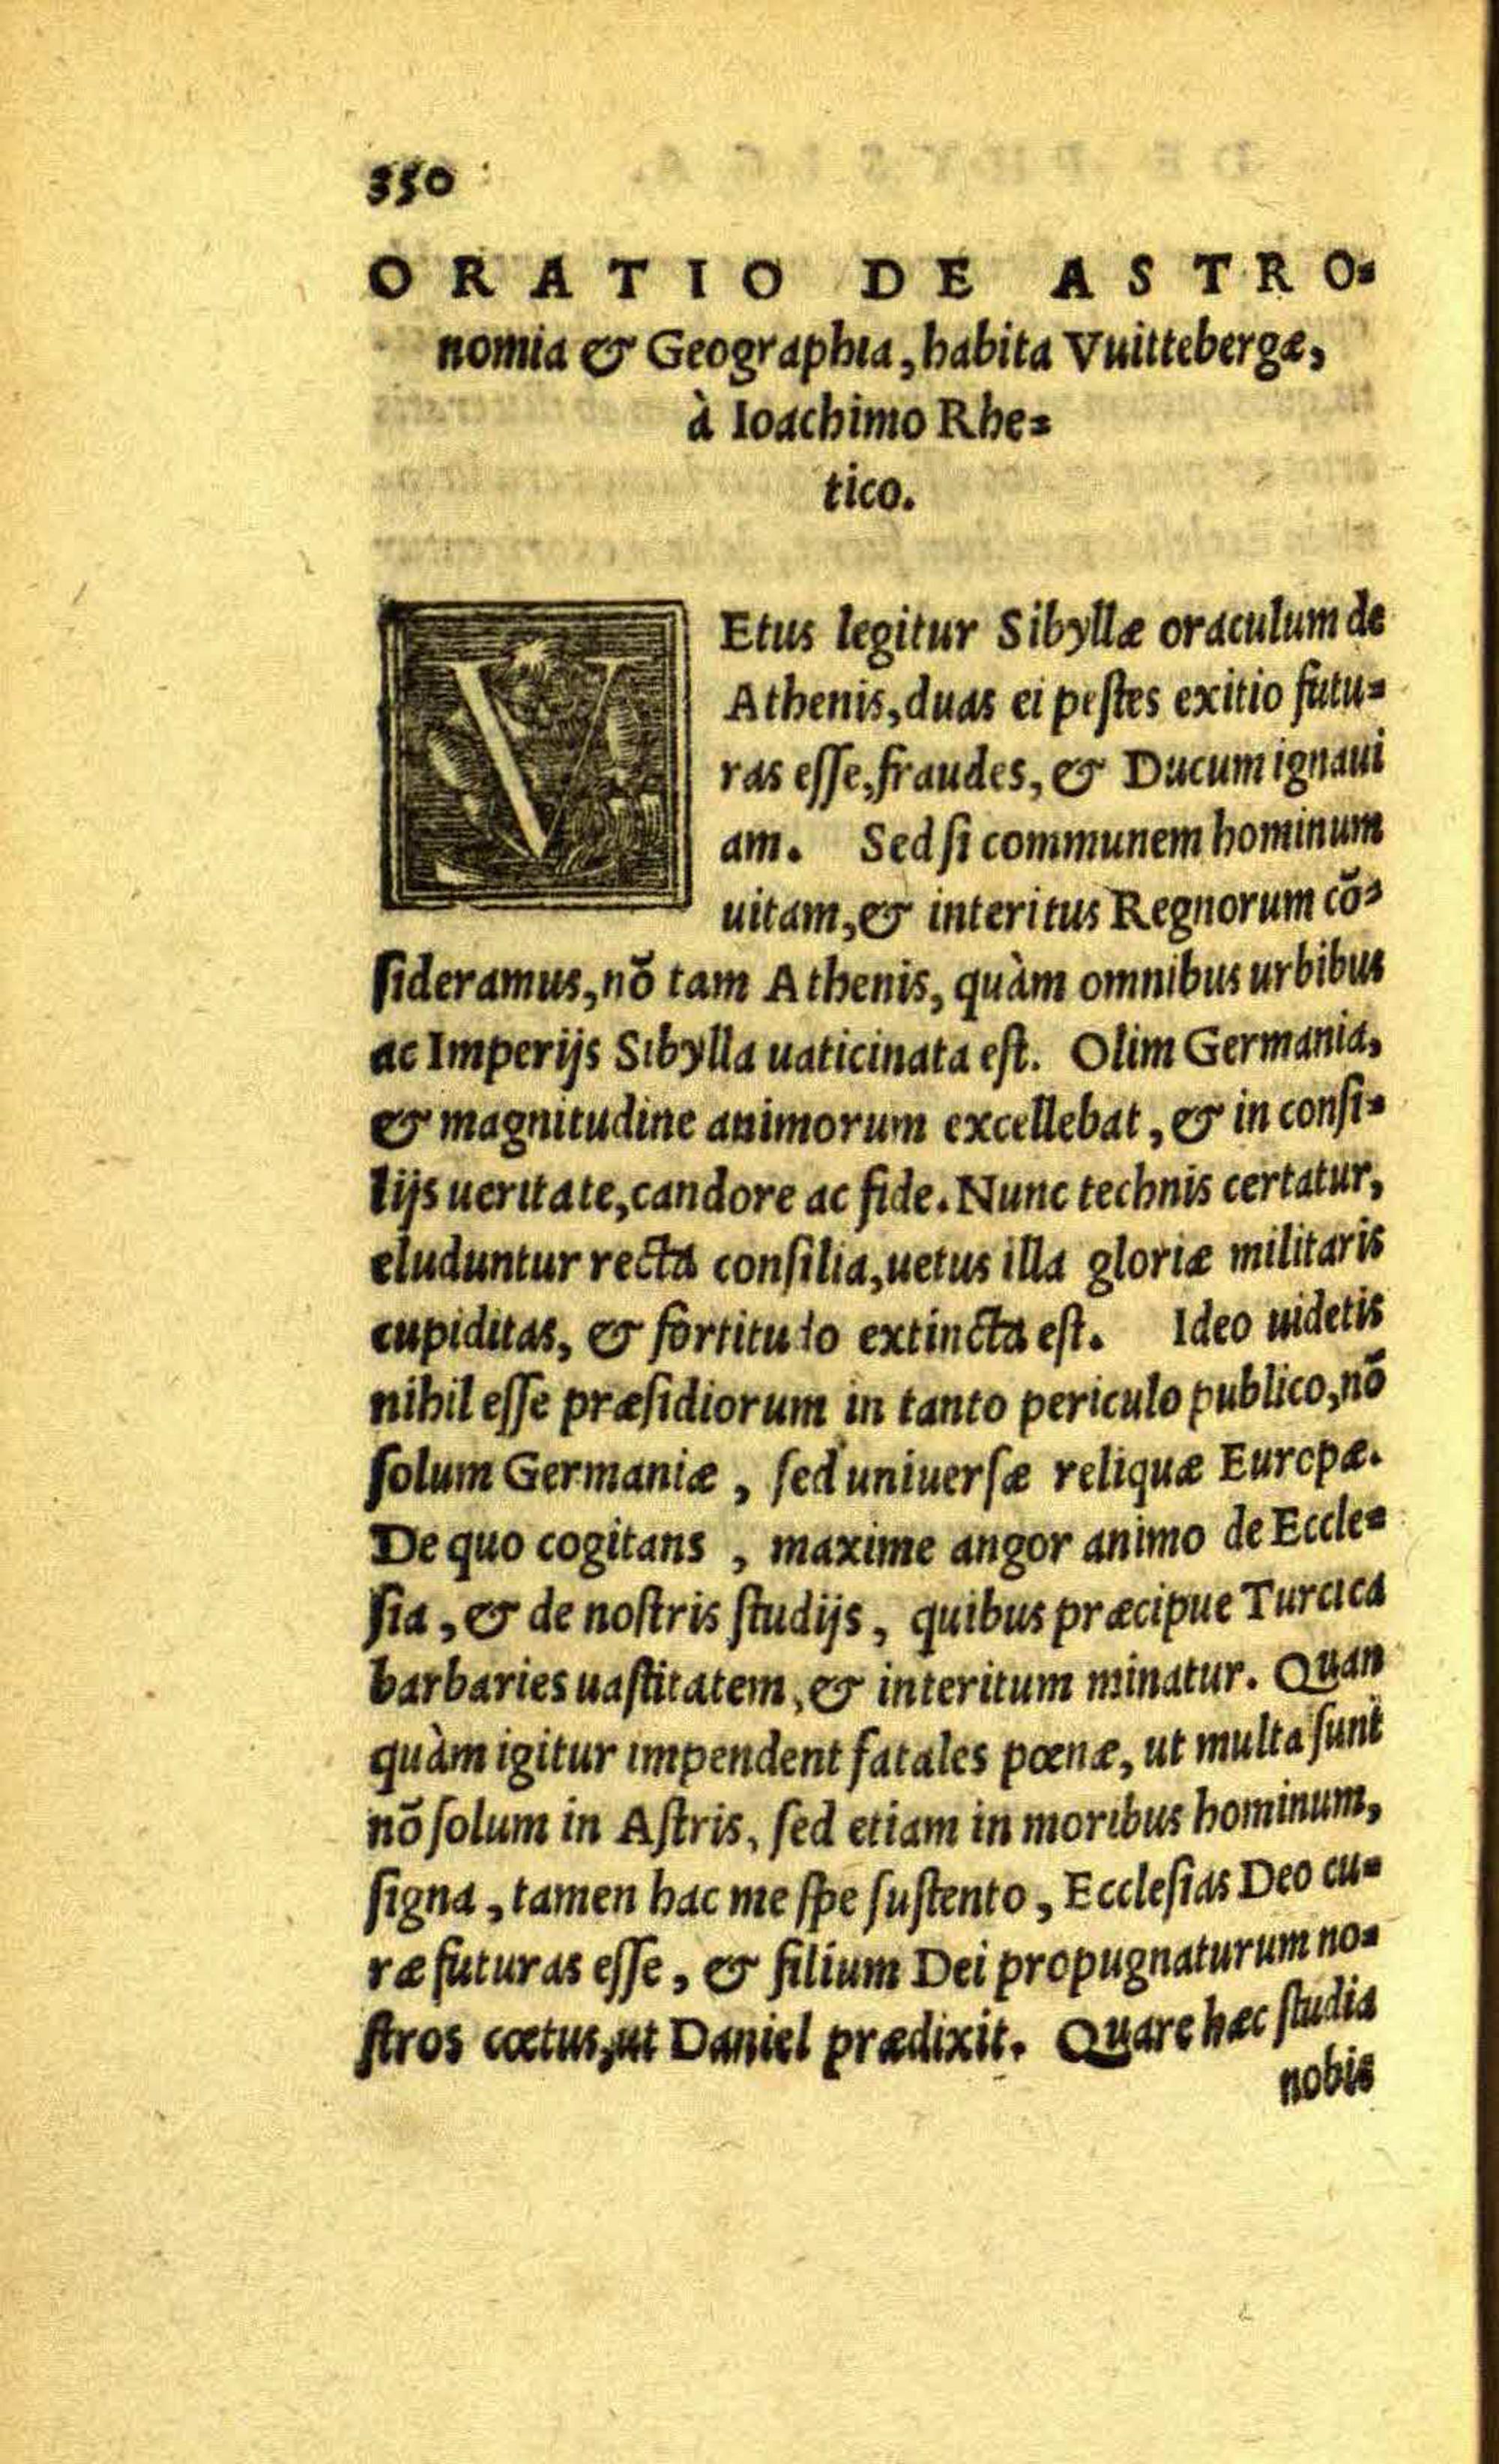 350
ORATIO DE ASTRO-
nomia & Geographia, habita Vuitteberge,
à Ioachimo Rhe-
tico.
VEtus legitur Sibyllæ oraculum de
Athenis, duas ei pestes exitio futu-
ras esse, fraudes, & Ducum ignaui
am. Sed si communem hominum
uitam, & interitus Regnorum cõ-
sideramus, nõ tam Athenis, quàm omnibus urbibus
ac Imperijs Sibylla uaticinata est. Olim Germania,
& magnitudine animorum excellebat, & in consi-
lijs ueritate, candore ac fide. Nunc technis certatur,
eluduntur recta consilia, uetus illa gloriæ militaris
cupiditas, & fortitudo extincta est. Ideo uidetis
nihil esse præsidiorum in tanto periculo publico, nõ
solum Germaniæ, sed uniuersæ reliquæ Europæ.
De quo cogitans, maxime angor animo de Eccle-
sia, & de nostris studijs, quibus præcipue Turcica
barbaries uastitatem, & interitum minatur. Quan
quàm igitur impendent fatales pœnæ, ut multa sunt
nõ solum in Astris, sed etiam in moribus hominum,
signa, tamen hac me spe sustento, Ecclesias Deo cu-
ræ futuras esse, & filium Dei propugnaturum no-
stros cœtus, ut Daniel prædixit. Quare hæc studia
nobis